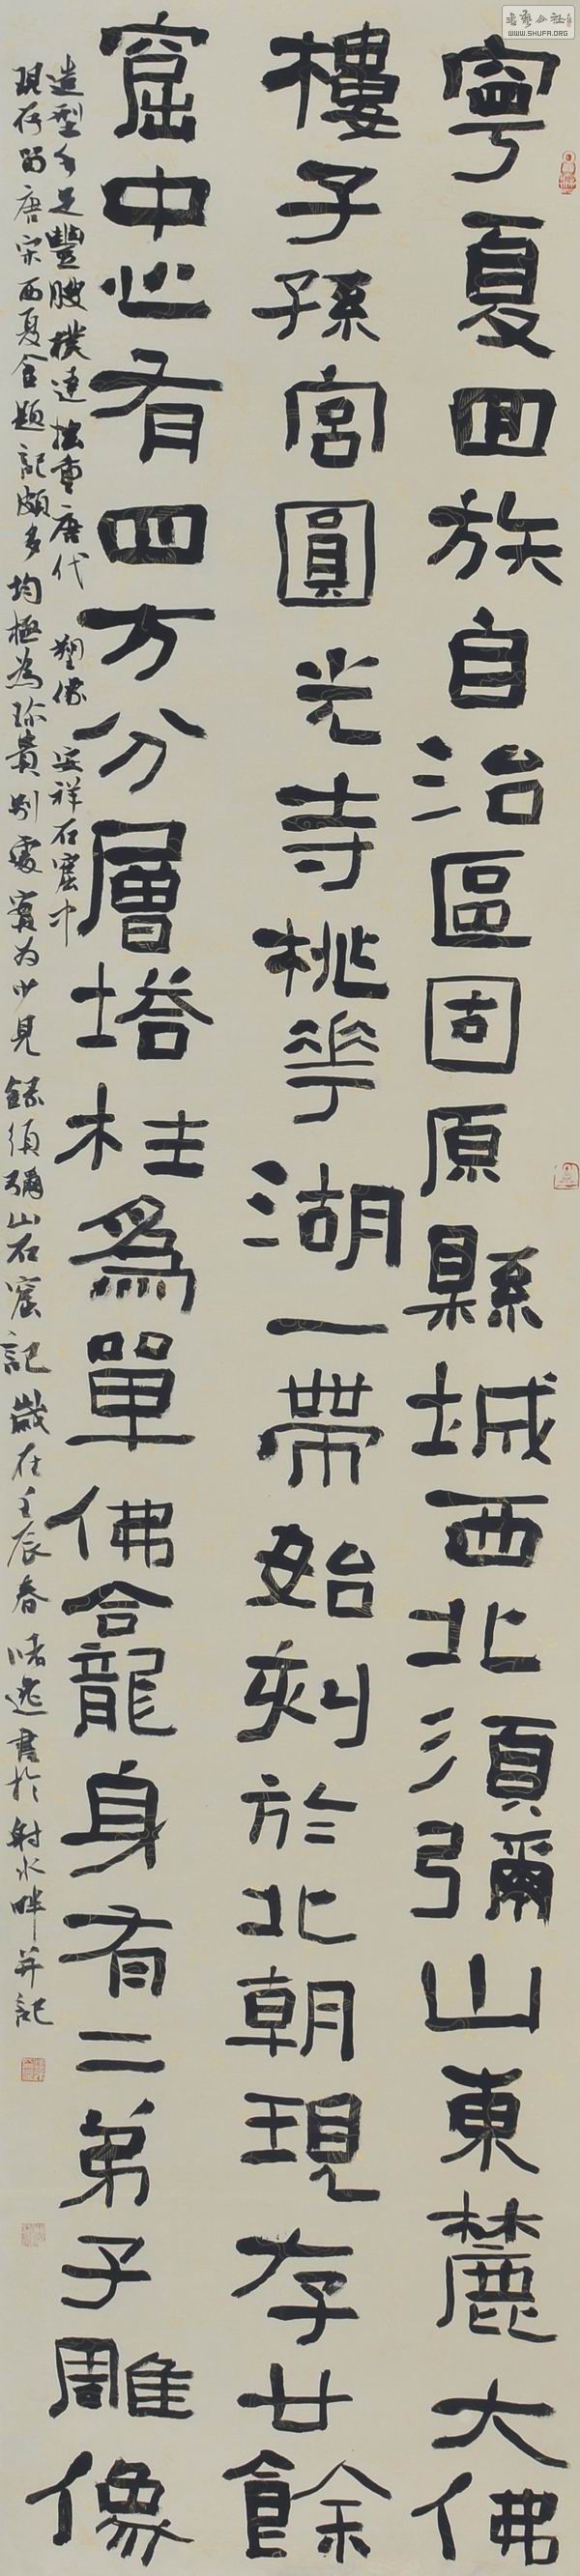 寧夏回族自治區固原縣城西北須彌山東麓大佛
樓子孫宮圓光寺桃花湖一帶始刻於北朝現存廿餘
窟中心有四方分層塔柱為單佛合龍身有二弟子雕像
造型手足豐腴樸達拙重唐代塑像安祥石窟中
現存留唐宋西夏合題記頗多均極為珍貴別處實為少見錄須彌山石窟記歲在壬辰春 書於射水畔并記
WWW.SHUFA.ORG